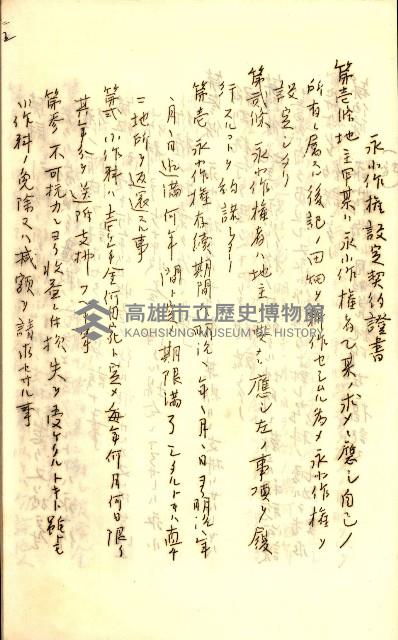 永小作権設定契約證書
第壱條地主甲某ハ永小作権者乙某ノ求メニ應シ自己ノ
所有ニ属スル後記ノ田畑ヲ耕作セシムル為メ永小作権ヲ
設定シタリ
第貳條 永小作権者ハ地主ニ應シ左ノ事項ヲ履
行スルコトヲ約諾シタリ
第壱 永小作権存續期間ハ明治、年、月、日ヨリ明治、年
、月、日迄満何年間 期限満了シタルトキハ直チ
ニ地所ヲ返還スル事
第貳 小作料ハ壱ケ年金何円ト定メ毎年何月何日限リ
其年分ヲ送附支拂フヘキ事
第参 不可抗力ニヨリ收益上損失ヲ受ケタルトキト雖モ
小作料ノ免除又ハ減額ヲ請求セサル事
高雄市立歷史博物館
KAOHSIUNG MUSEUM OF HISTORY